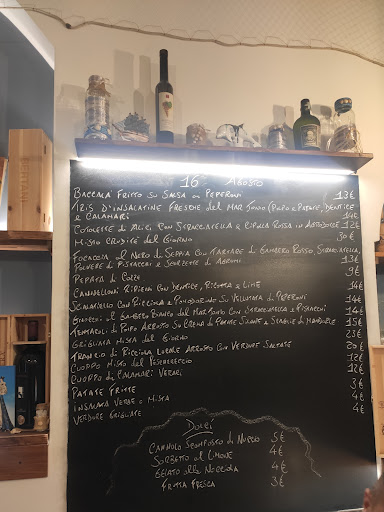 16 Agosto
Baccalà Fritto su Salsa di Peperoni 13€
Tris d'insalatine Fresche del Mar Jonio (Polpo e Patate, Dentice
e Calamari 14€
Cotolette di Alici con Stracciatella e Cipolla Rossa in Agrodolce 12€
Misto crudité del Giorno 30€
Focaccia al Nero di Seppia con Tartare di Gambero Rosso, Stracciatella,
Polvere di Pistacchi e Scorzette di Agrumi 13€
Pepata di Cozze 9€
Cannelloni Ripieni con Dentice, Ricotta e Lime 14€
Scialatielli con Ricciola e Pomodorino su Vellutata di Peperoni 14€
Gnocchi al Gambero Bianco del Mar Jonio con Stracciatella e Pistacchi 14€
Tentacoli di Polpo Arrosto su Crema di Patate Silane e Scaglie di Mandorle 15€
Grigliata Mista del Giorno 23€
Trancio di Ricciola Locale Arrosto con Verdure Saltate 20€
Cuoppo Misto del Peschereccio 12€
Cuoppo di Calamari Veraci 12€
Patate Fritte 3€
Insalata Verde o Mista 4€
Verdure Grigliate 4€
Dolci
Cannolo Scomposto di Nuccio 5€
Sorbetto al Limone 4€
Gelato alla Nocciola 4€
Frutta Fresca 3€